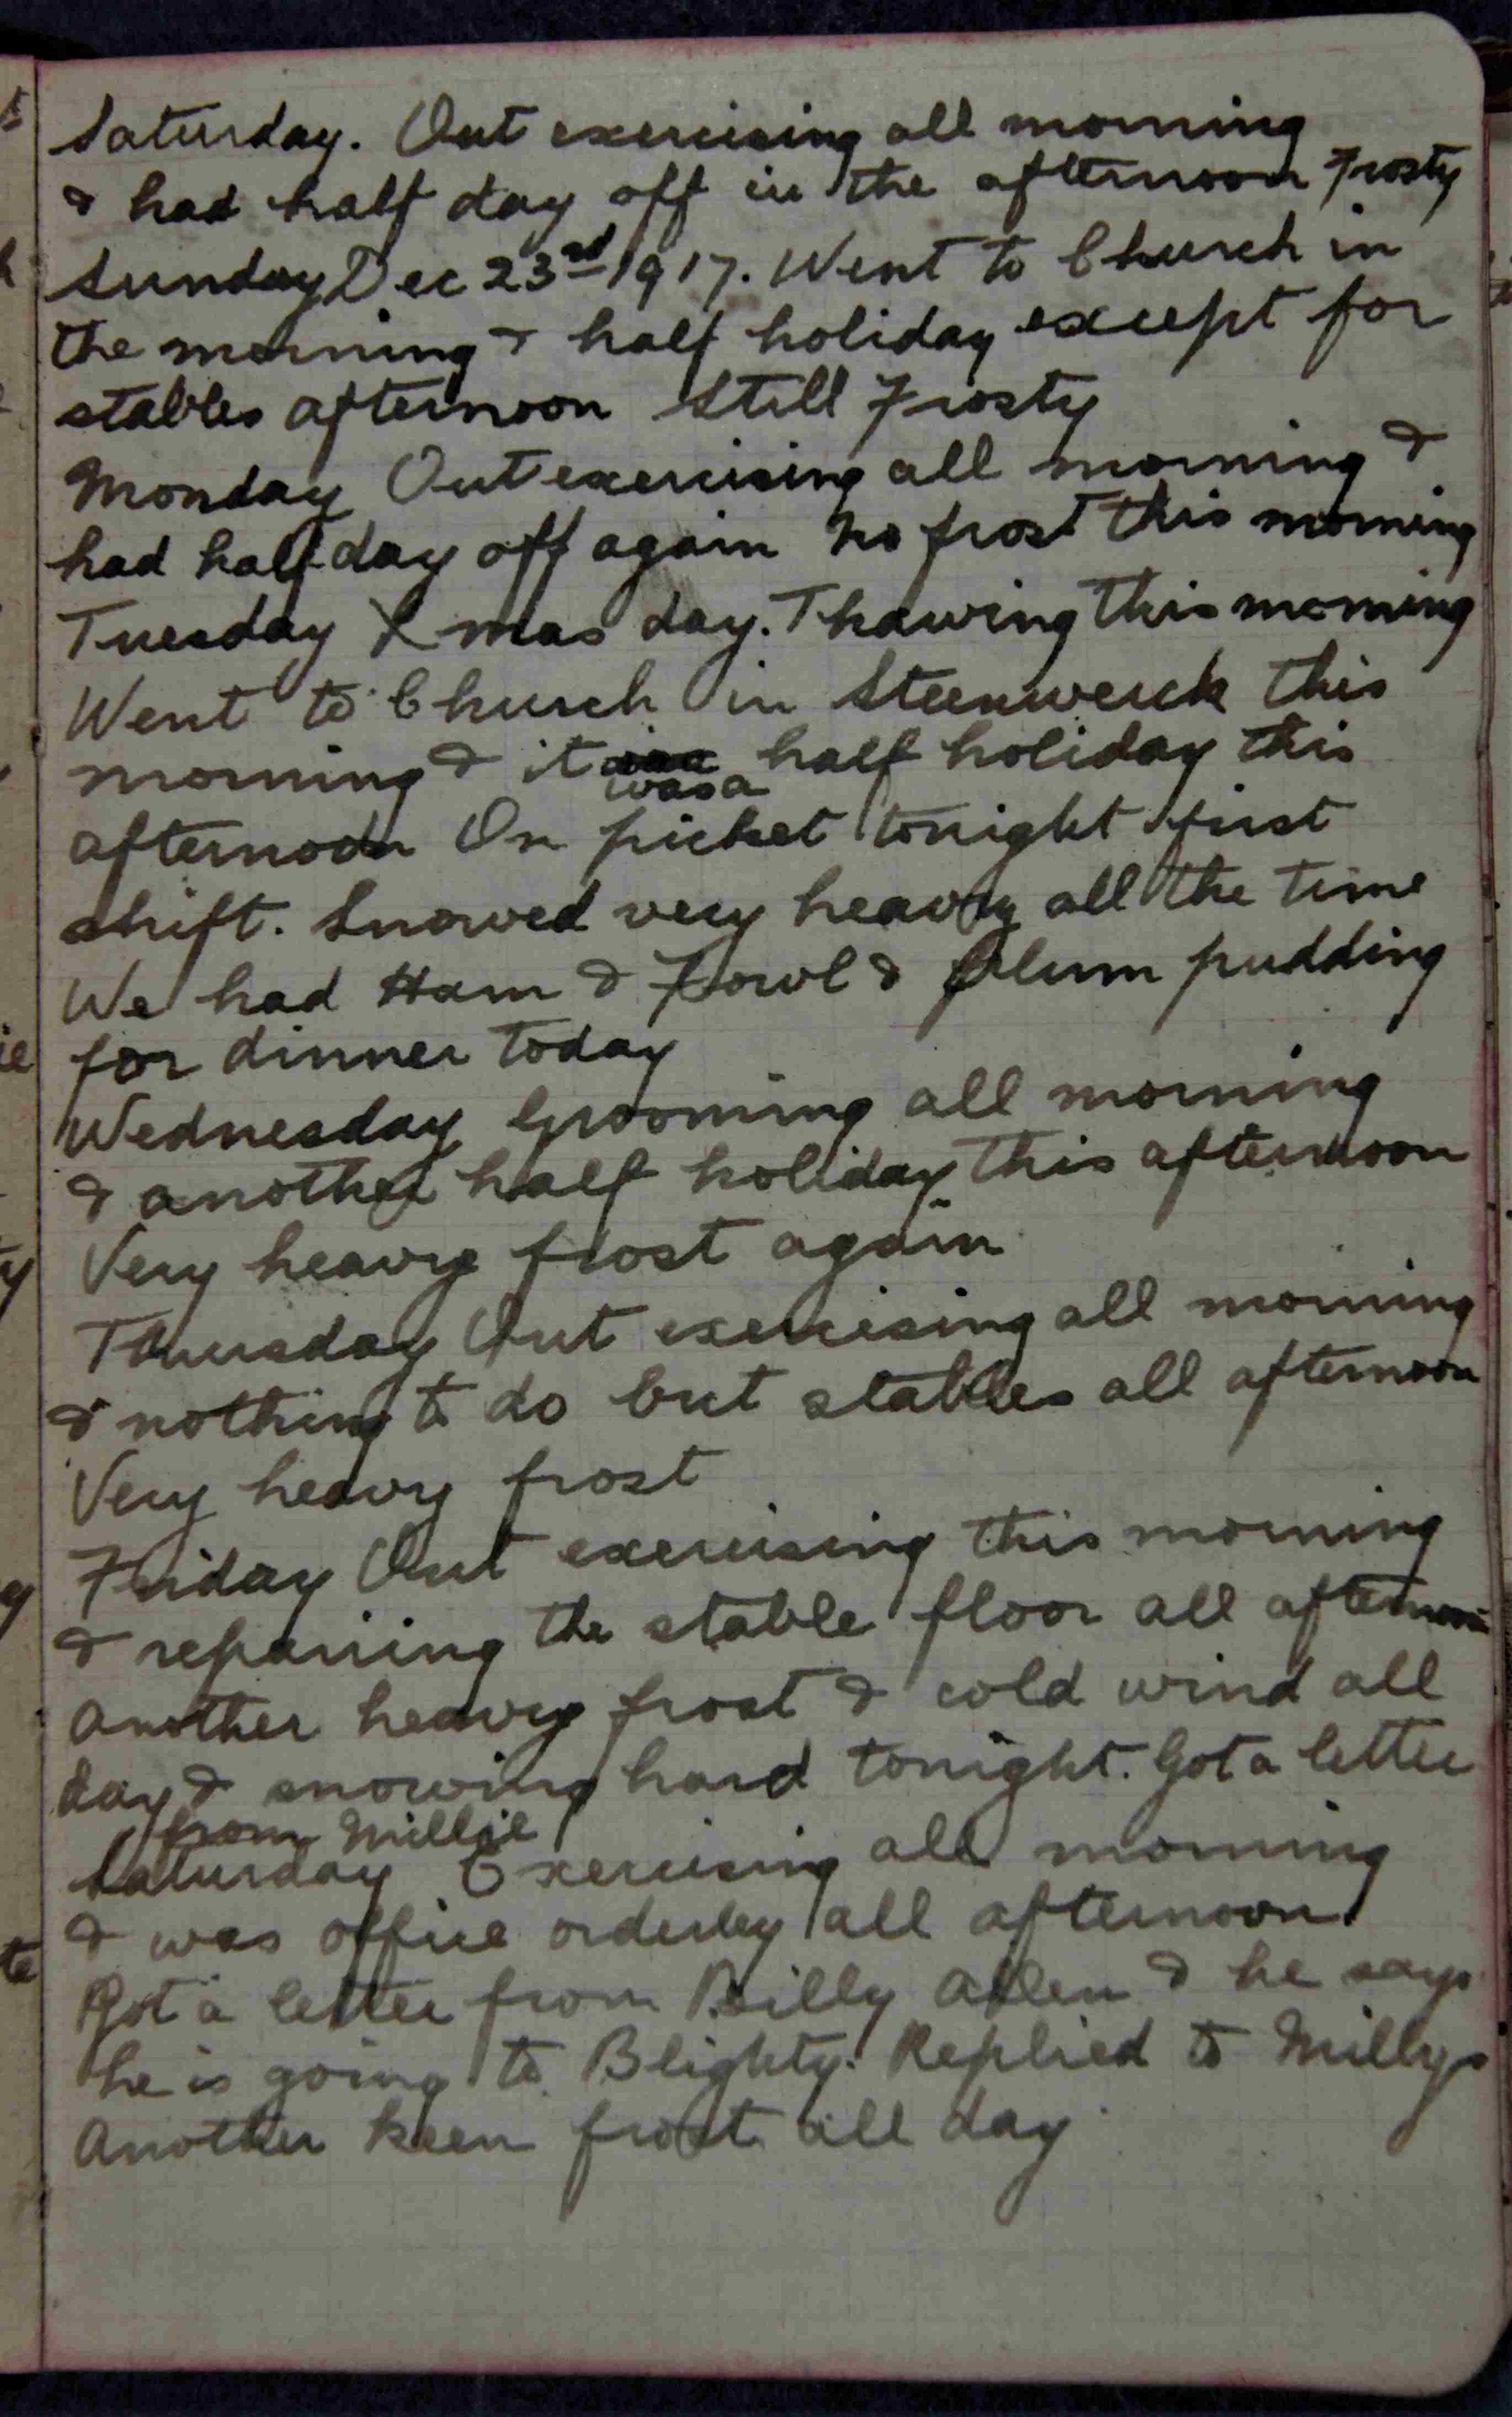 Saturday. Out exercising all morning
& had half day off in the afternoon Frosty
Sunday Dec 23rd 1917. Went to Church in
the morning & half holiday except for
stables afternoon Still Frosty
Monday Out exercising all morning &
had half day off again No frost this morning
Tuesday Xmas day. Thawing this morning
Went to Church in Steenwerck this
morning & it was a half holiday this
afternoon On picket tonight first
shift. Snowed very heavy all the time
We had Ham & Fowl & Plum pudding
for dinner today
Wednesday Grooming all morning
& another half holiday this afternoon
Very heavy frost again
Thursday Out exercising all morning
& nothing to do but stables all afternoon
Very heavy frost
Friday Out exercising this morning
& repairing the stable floor all afternoon
another heavy frost & cold wind all
day & snowing hard tonight. Got a letter
from Millie
Saturday Exercising all morning
& was office orderley all afternoon.
Got a letter from Billy Allen & he says
he is going to Blighty. Replied to Millys
Another keen frost all day